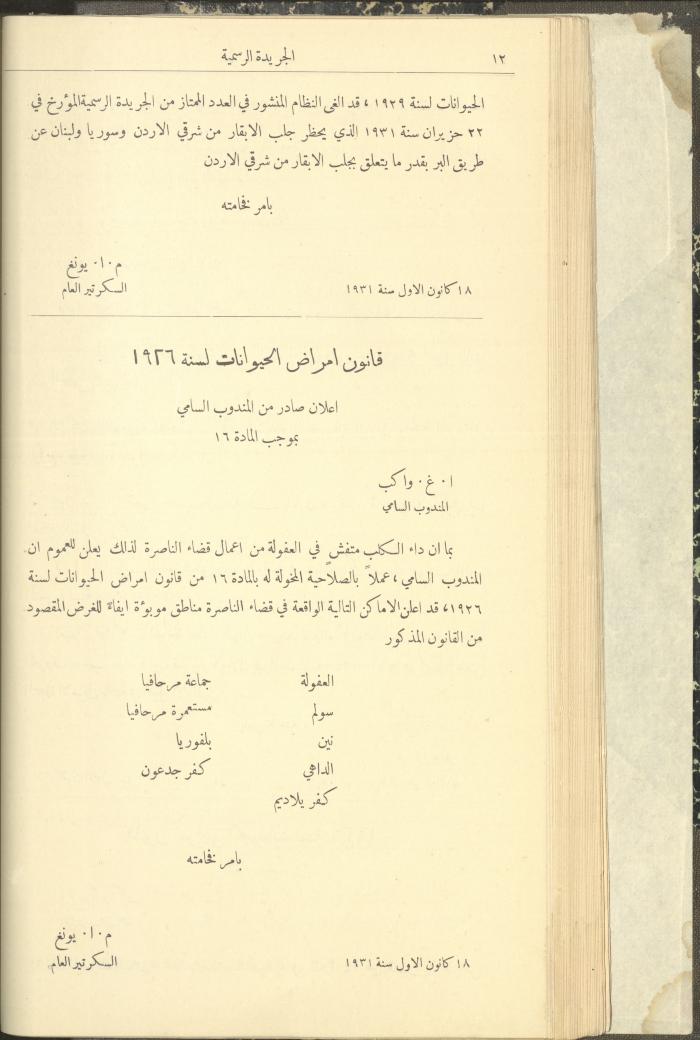 ١٢
الجريدة الرسمية
الحيوانات لسنة ١٩٢٩ ، قد الغى النظام المنشور في العدد الممتاز من الجريدة الرسمية المؤرخ في
٢٢ حزيران سنة ١٩٣١ الذي يحظر جلب الابقار من شرقي الاردن وسوريا ولبنان عن
طريق البر بقدر ما يتعلق بجلب الابقار من شرقي الاردن
بامر فخامته
م٠ا٠ يونغ
١٨ كانون الاول سنة ١٩٣١
السكرتير العام
قانون امراض الحيوانات لسنة ١٩٢٦
اعلان صادر من المندوب السامي
بموجب المادة ١٦
ا٠ غ٠ واكب
المندوب السامي
بما ان داء الكلب متفش في العفولة من اعمال قضاء الناصرة لذلك يعلن للعموم ان
المندوب السامي ، عملاً بالصلاحية المخولة له بالمادة ١٦ من قانون امراض الحيوانات لسنة
١٩٢٦، قد اعلن الاماكن التالية الواقعة في قضاء الناصرة مناطق موبوءة ايفاءً للغرض المقصود
من القانون المذكور
العفولة جماعة مرحافيا
سولم مستعمرة مرحافيا
نين بلفوريا
الداهي كفر جدعون
كفر يلاديم
بامر فخامته
م٠ا٠ يونغ
١٨ كانون الاول سنة ١٩٣١
السكرتير العام